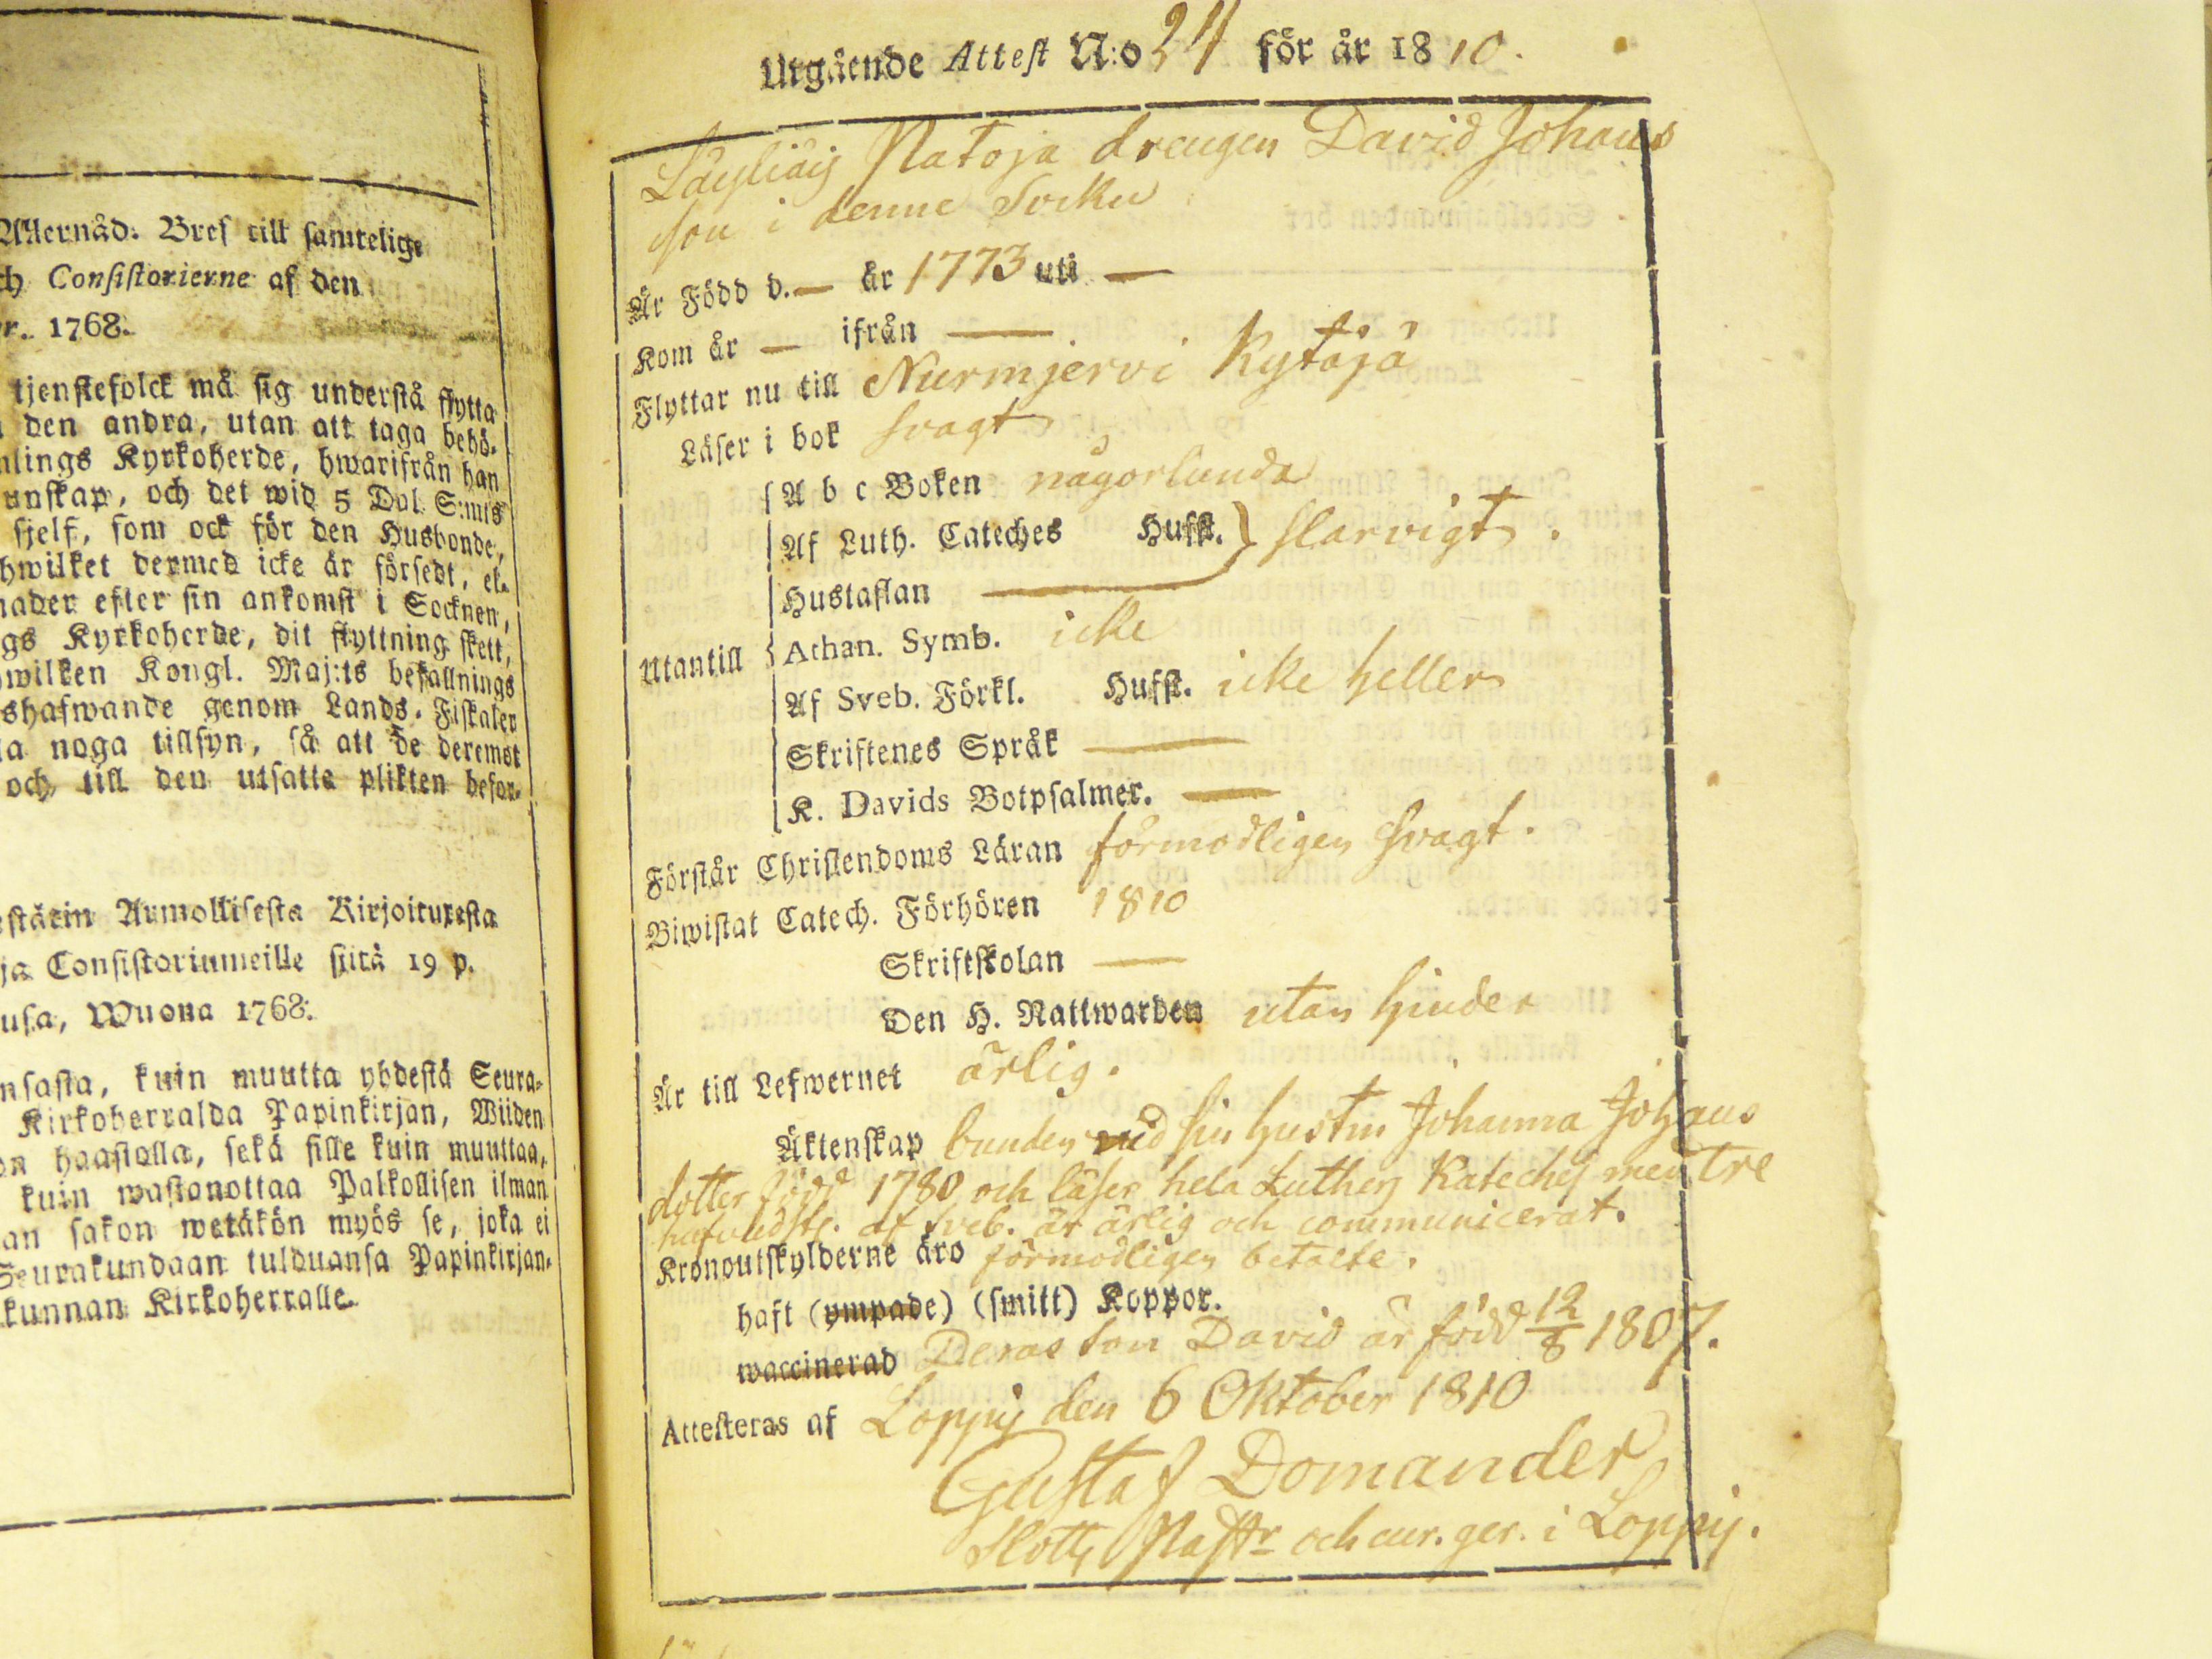 Allernåd. Bref till samtelige
ch Consistorierne af den
r. 1768.
tjenstefolck må sig understå flytta
den andra, utan att taga behö-
lings Kyrkoherde, hwarifrån han
unskap, och det wid 5 Dal. S:mts
sjelf, som ock för den Husbonde,
hwilket dermed icke är försedt, el-
nader efter sin ankomst i Socknen,
gs Kyrkoherde, dit flyttning skett,
wilken Kongl. Maj:ts befallnings
shafwande genom Lands-Fiskaler
a noga tillsyn, så att de deremot
och till den utsatte plikten befor-
stätin Armollisesta Kirjoituxesta
ja Consistoriumeille siitä 19 p.
usa, Wuona 1768.
nsasta, kuin muutta yhdestä Seura-
Kirkoherralda Papinkirjan, Wiiden
on haastolla, sekä sille kuin muuttaa,
kuin wastanottaa Palkollisen ilman
an sakon wetäkön myös se, joka ei
Seurakundaan tulduansa Papinkirjan-
kunnan Kirkoherralle.
Utgående Attest N:o 24 för år 1810.
Läyliäis Patoja drengen David Johans
son i denne Sockn
Är Född d. — år 1773 uti —
Kom år — ifrån —
Flyttar nu till Nurmjervi Kytäjä
Läser i bok svagt
A b c Boken någorlunda
Af Luth. Cateches Hufst. } slarvigt.
Hustaflan —
Utantill { Athan. Symb. icke
Af Sveb. Förkl. Hufst. icke heller
Skriftenes Språk —
K. Davids Botpsalmer. —
Förstår Christendoms Läran förmodligen svagt.
Biwistat Catech. Förhören 1810
Skriftskolan —
Den H. Nattwarden utan hinder
Är till Lefwernet ärlig.
Äktenskap bunden vid sin hustru Johanna Johans
dotter född 1780 och läser hela Luthers Kateches med tre
hufvudst. af Sveb. är ärlig och communicerat.
Kronoutskylderne äro förmodligen betalte.
haft (ympade) (smitt) Koppor.
waccinerad Deras son David är född 12/8 1807.
Attesteras af Loppis den 6 Oktober 1810
Gustaf Domander
Slotts Past:r och cur. ger. i Loppis.